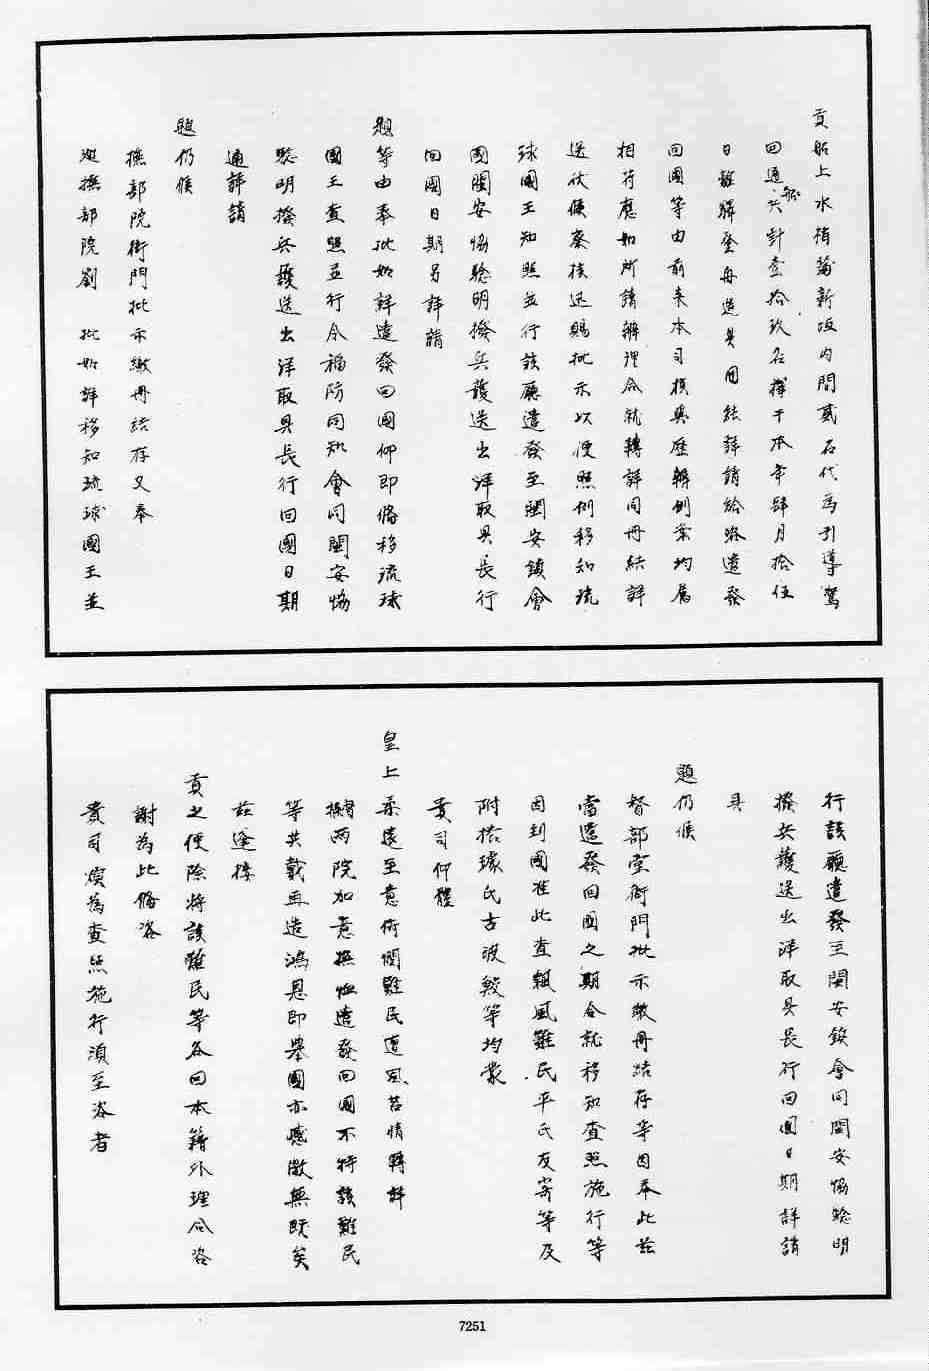 貢船上水梢蒲新垣内間貳名代為引導駕
回通船共計壹拾玖名擇于本年肆月拾伍
日離驛登舟造具冊結詳請給咨遣發
回國等由前来本司撫與歴辦例案均属
相符應如所請辦理合就轉詳同冊結詳
送伏候察核迅賜批示以便照例移知琉
球國王知照並行該廳遣發至閩安鎮會
同閩安協驗明撥兵護送出洋取具長行
回國日期另詳請
題等由奉批如詳遣發回國仰即備移琉球
國王查照並行令福防同知會同閩安協
驗明撥兵護送出洋取具長行回國日期
通詳請
題仍候
撫部院衙門批示繳冊結存又奉
巡撫部院劉 批如詳移知琉球國王並
行該廳遣發至閩安鎮會同閩安協驗明
撥兵護送出洋取具長行回國日期詳請
具
題仍候
督部堂衙門批示繳冊結存等因奉此兹
當遣發回國之期合就移知查照施行等
因到國准此查飄風難民平氏友寄等及
附搭璩氏古波鮫等均蒙
貴司仰體
皇上柔遠至意俯憫難民遭風苦情轉詳
督撫兩院加意撫恤遣發回國不特該難民
等共戴再造鴻恩即舉國亦感激無既矣
兹逢接
貢之便除将該難民等各回本籍外理合咨
謝為此俻咨
貴司煩為查照施行須至咨者
7251